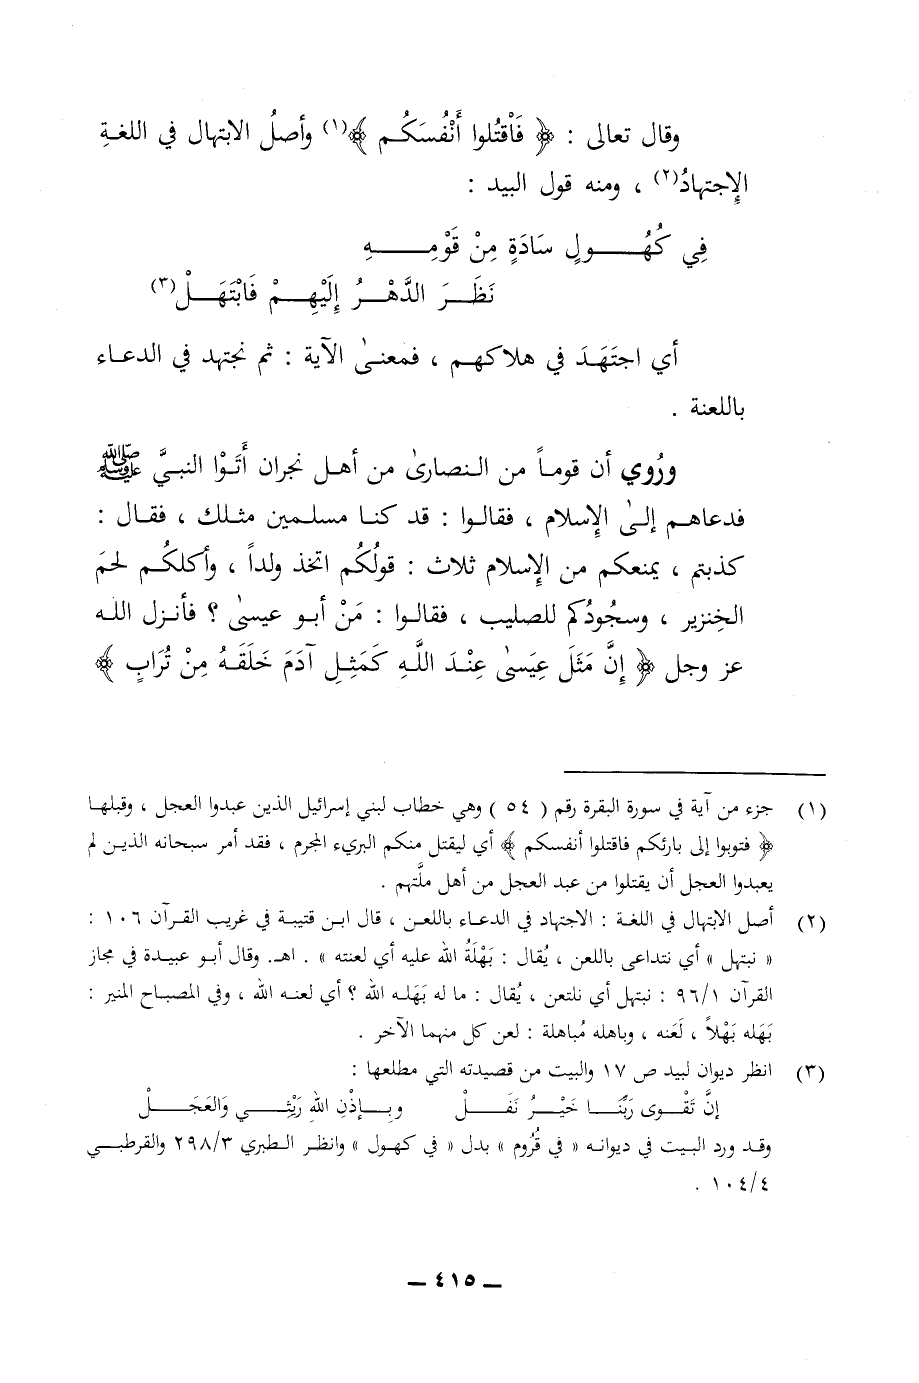 وقال تعالى : ﴿ فَاْقتُلوا أَنْفُسَكُم ﴾(١) وأصلُ الابتهال في اللغةِ
الإِجتهادُ(٢) ، ومنه قول البيد :
فِي كُهُـــولٍ سَادَةٍ مِنْ قَوْمِـــهِ
نَظَـرَ الدَّهْـرُ إِلَيْهِـمْ فَابْتَهَـلْ(٣)
أي اجتَهَـدَ في هلاكهـم ، فمعنىٰ الآية : ثم نجتهد في الدعـاء
باللعنة .
ورُوي أن قومـاً من النـصارىٰ من أهـل نجران أَتَـوْا النبـيَّ ﷺ
فدعاهـم إلـىٰ الإِسلام ، فقالـوا : قد كنـا مسلـمين مثـلك ، فقـال :
كذبتم ، يمنعكم من الإِسلام ثلاث : قولُكُم اتخذ ولداً ، وأكلكُـم لحمَ
الخنزير ، وسجُودُكم للصليب ، فقالـوا : مَنْ أبـو عيسىٰ ؟ فأنـزل اللـه
عز وجل ﴿ إِنَّ مَثَلَ عِيَسىٰ عِنْـدَ اللَّـهِ كَمَثِـلِ آدَمَ خَلَقَـهُ مِنْ تُرَابٍ ﴾
(١) جزء من آية في سورة البقرة رقم ( ٥٤ ) وهي خطاب لبني إسرائيل الذين عبدوا العجل ، وقبلهـا
﴿ فتوبوا إلى بارئكم فاقتلوا أنفسكم ﴾ أي ليقتل منكم البريء المجرم ، فقد أمر سبحانه الذيـن لم
يعبدوا العجل أن يقتلوا من عبد العجل من أهل ملَّتهم .
(٢) أصل الابتهال في اللغة : الاجتهاد في الدعاء باللعن ، قال ابـن قتيبـة في غريب القـرآن ١٠٦ :
« نبتهل » أي نتداعى باللعن ، يُقال : بَهْلَةُ الله عليه أي لعنته » . اهـ. وقال أبـو عبيدة في مجاز
القرآن ٩٦/١ : نبتهل أي نلتعن ، يُقال : ما له بَهَلـه الله ؟ أي لعنـه الله ، وفي المصبـاح المنير :
بَهَله بَهْلاً ، لَعَنه ، وباهله مُباهلة : لعن كل منهما الآخر .
(٣) انظر ديوان لبيد ص ١٧ والبيت من قصيدته التي مطلعها :
إنَّ تَقْـوى رَبِّنَـا خَيْـرُ نَفَـلْ وبـإِذْنِ اللهِ رَيْثِـي وَالعَجَـلْ
وقـد ورد البيـت في ديوانـه « في قُرُوم » بدل « في كهول » وانظـر الطـبري ٢٩٨/٣ والقرطبـي
١٠٤/٤ .
ـ ٤١٥ ـ